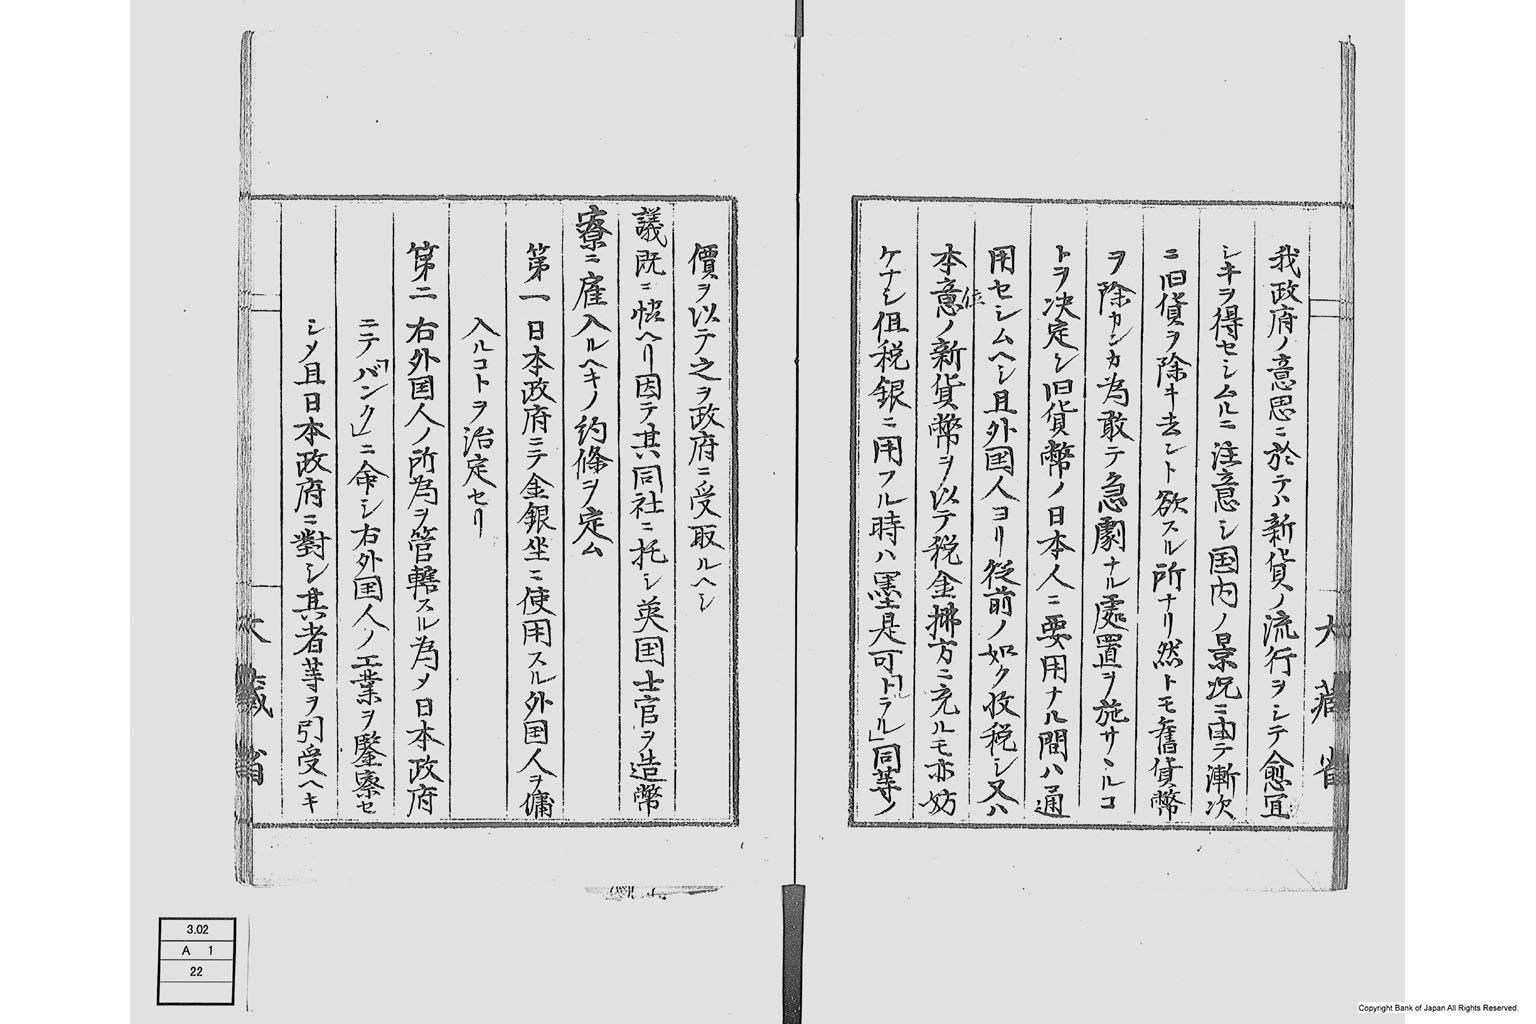 我政府ノ意思ニ於テハ新貨ノ流行ヲシテ愈宜
シキヲ得セシムルニ注意シ国内ノ景况ニ由テ漸次
ニ旧貨ヲ除キ去ント欲スル所ナリ然トモ舊貨幣
ヲ除カンカ為敢テ急劇ナル處置ヲ施サヽルコ
トヲ决定シ旧貨幣ノ日本人ニ要用ナル間ハ通
用セシムヘシ且外国人ヨリ従前ノ如ク收税シ又ハ
本位ノ新貨幣ヲ以テ税金拂方ニ充ルモ亦妨
ケナシ但税銀ニ用フル時ハ墨是可「ドラル」同等ノ
大藏省
價ヲ以テ之ヲ政府ニ受取ルヘシ
議既ニ恊ヘリ因テ其同社ニ托シ英国士官ヲ造幣
寮ニ雇入ルヘキノ約條ヲ定ム
第一 日本政府ニテ金銀坐ニ使用スル外国人ヲ傭
入ルコトヲ治定セリ
第二 右外国人ノ所為ヲ管轄スル為メ日本政府
ニテ「バンク」ニ命シ右外国人ノ工業ヲ鑒察セ
シメ且日本政府ニ對シ其者等ヲ引受ヘキ
大藏省
3.02
A 1
22
Copyright Bank of Japan All Rights Reserved.